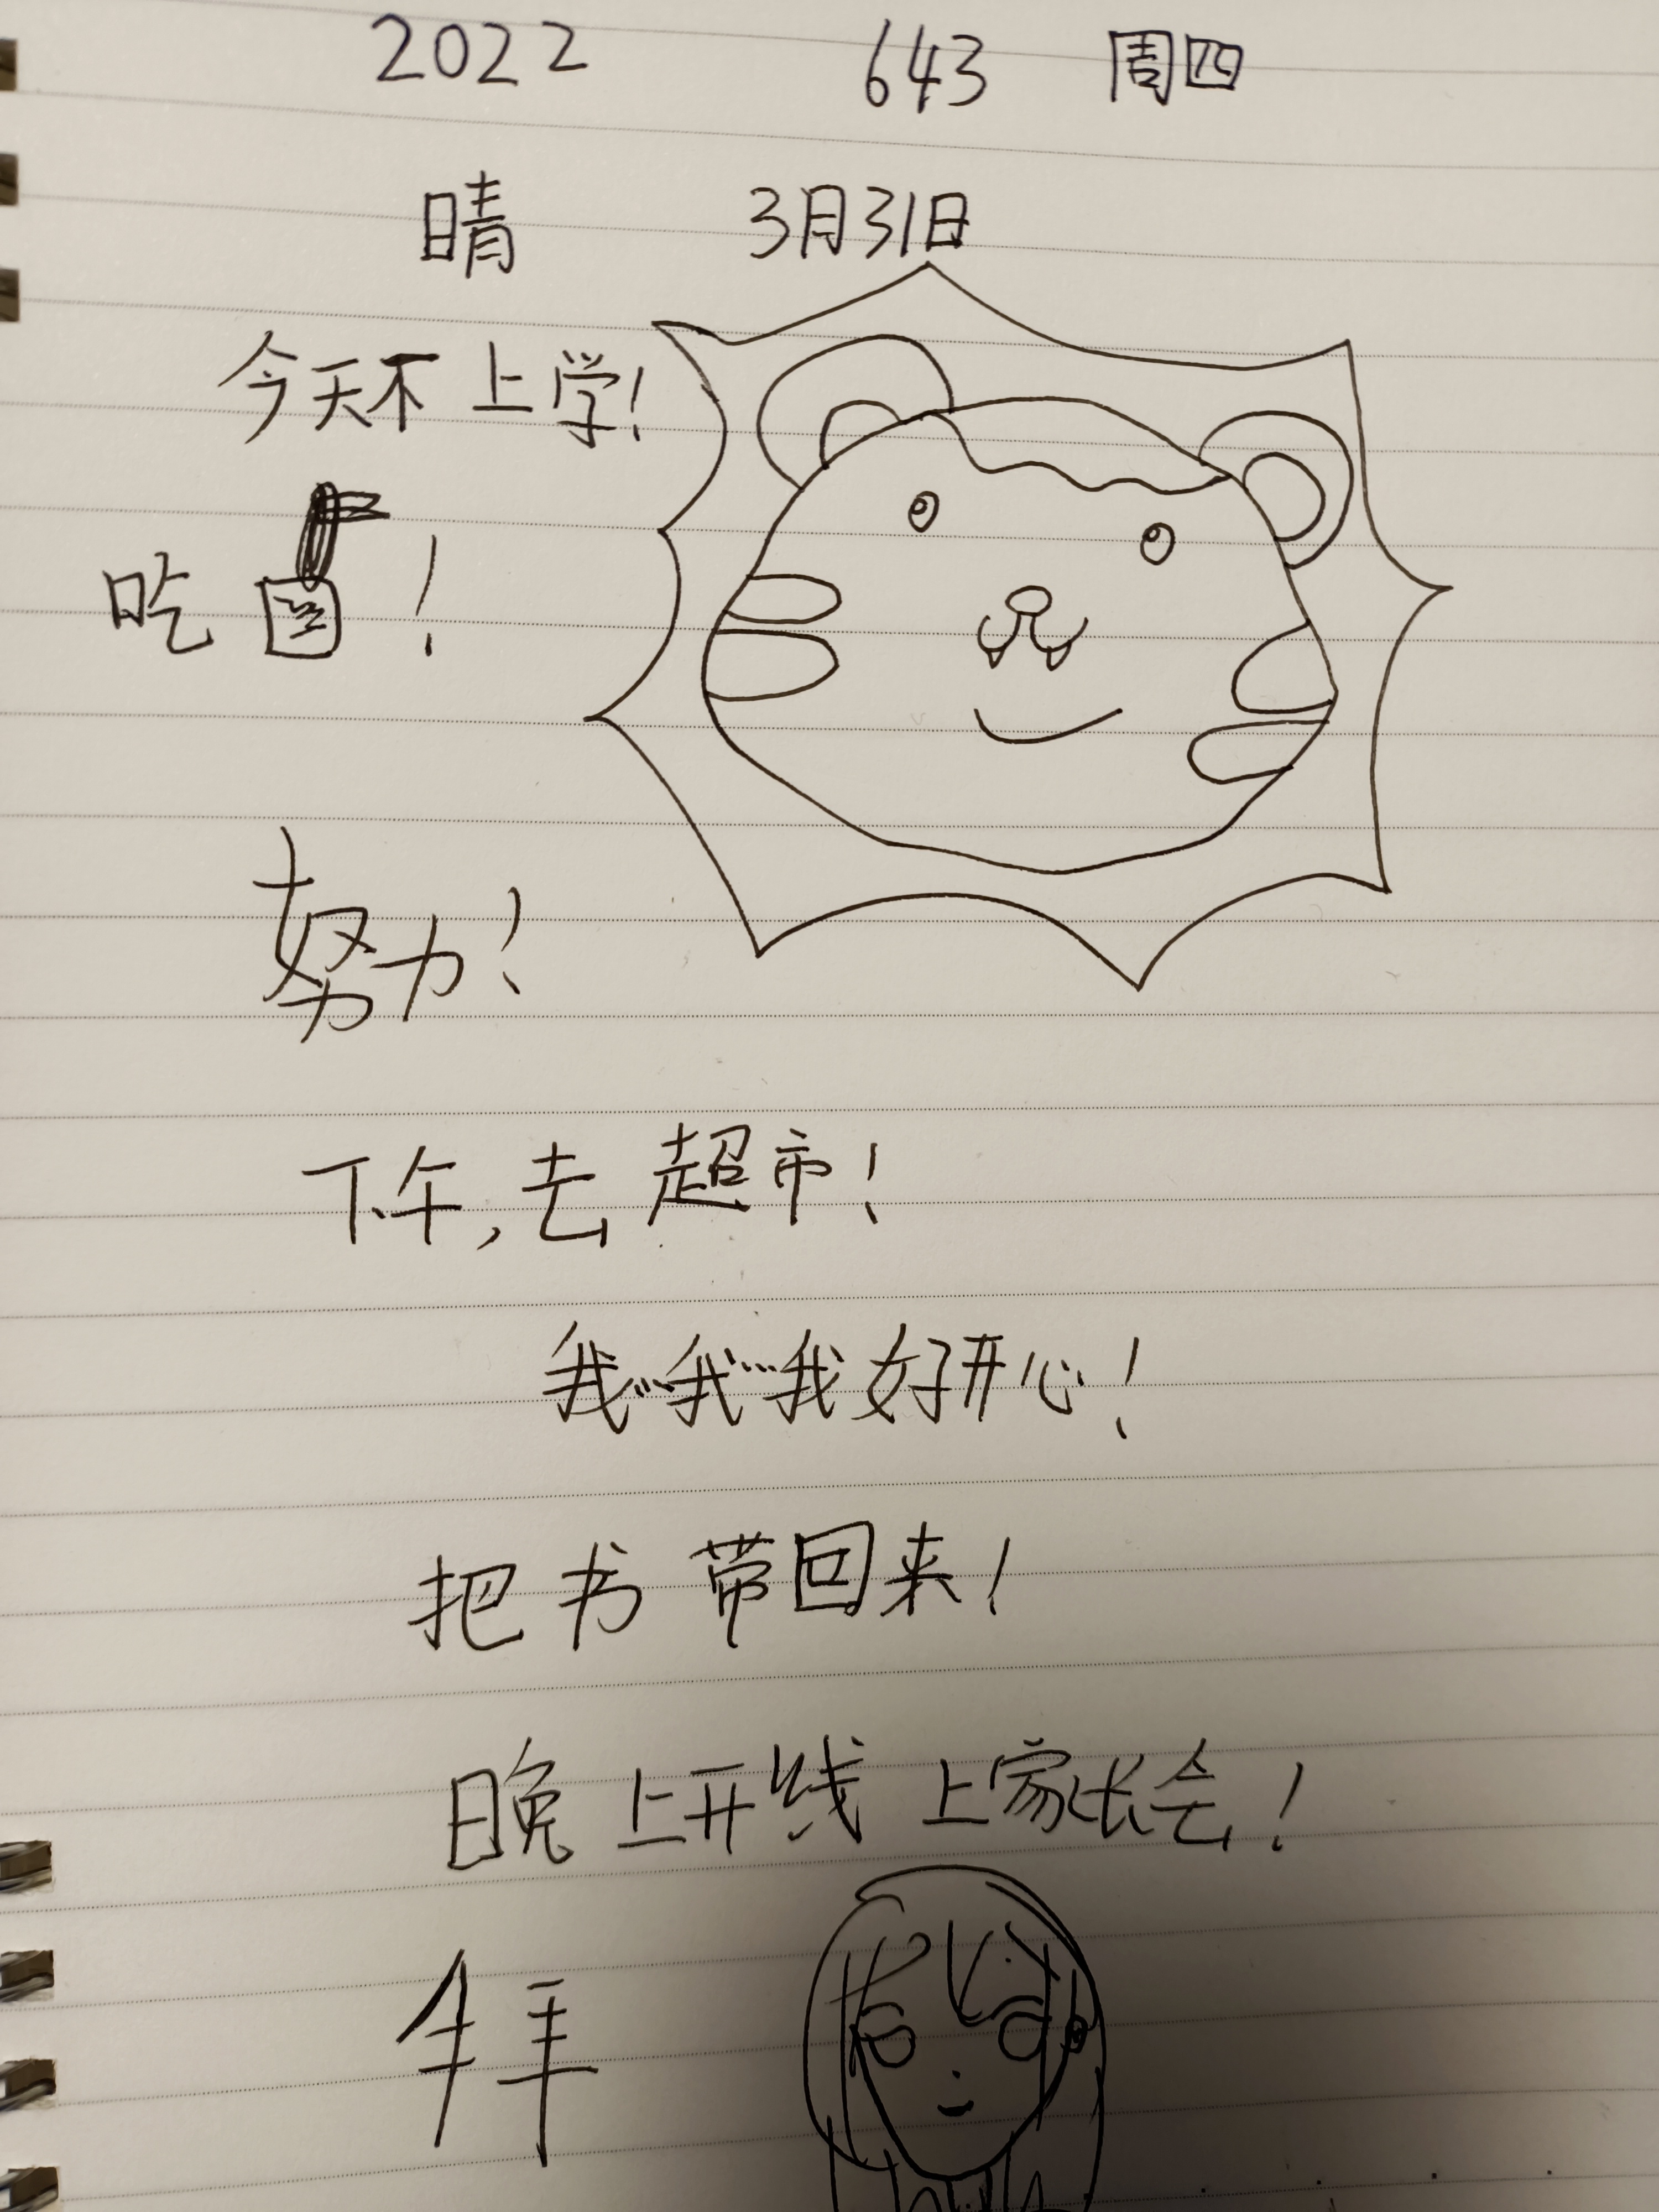 2022 643 周四
晴 3月31日
今天不上学!
吃!
努力!
下午,去超市!
我…我…我好开心!
把书带回来!
晚上开线上家长会!
拜